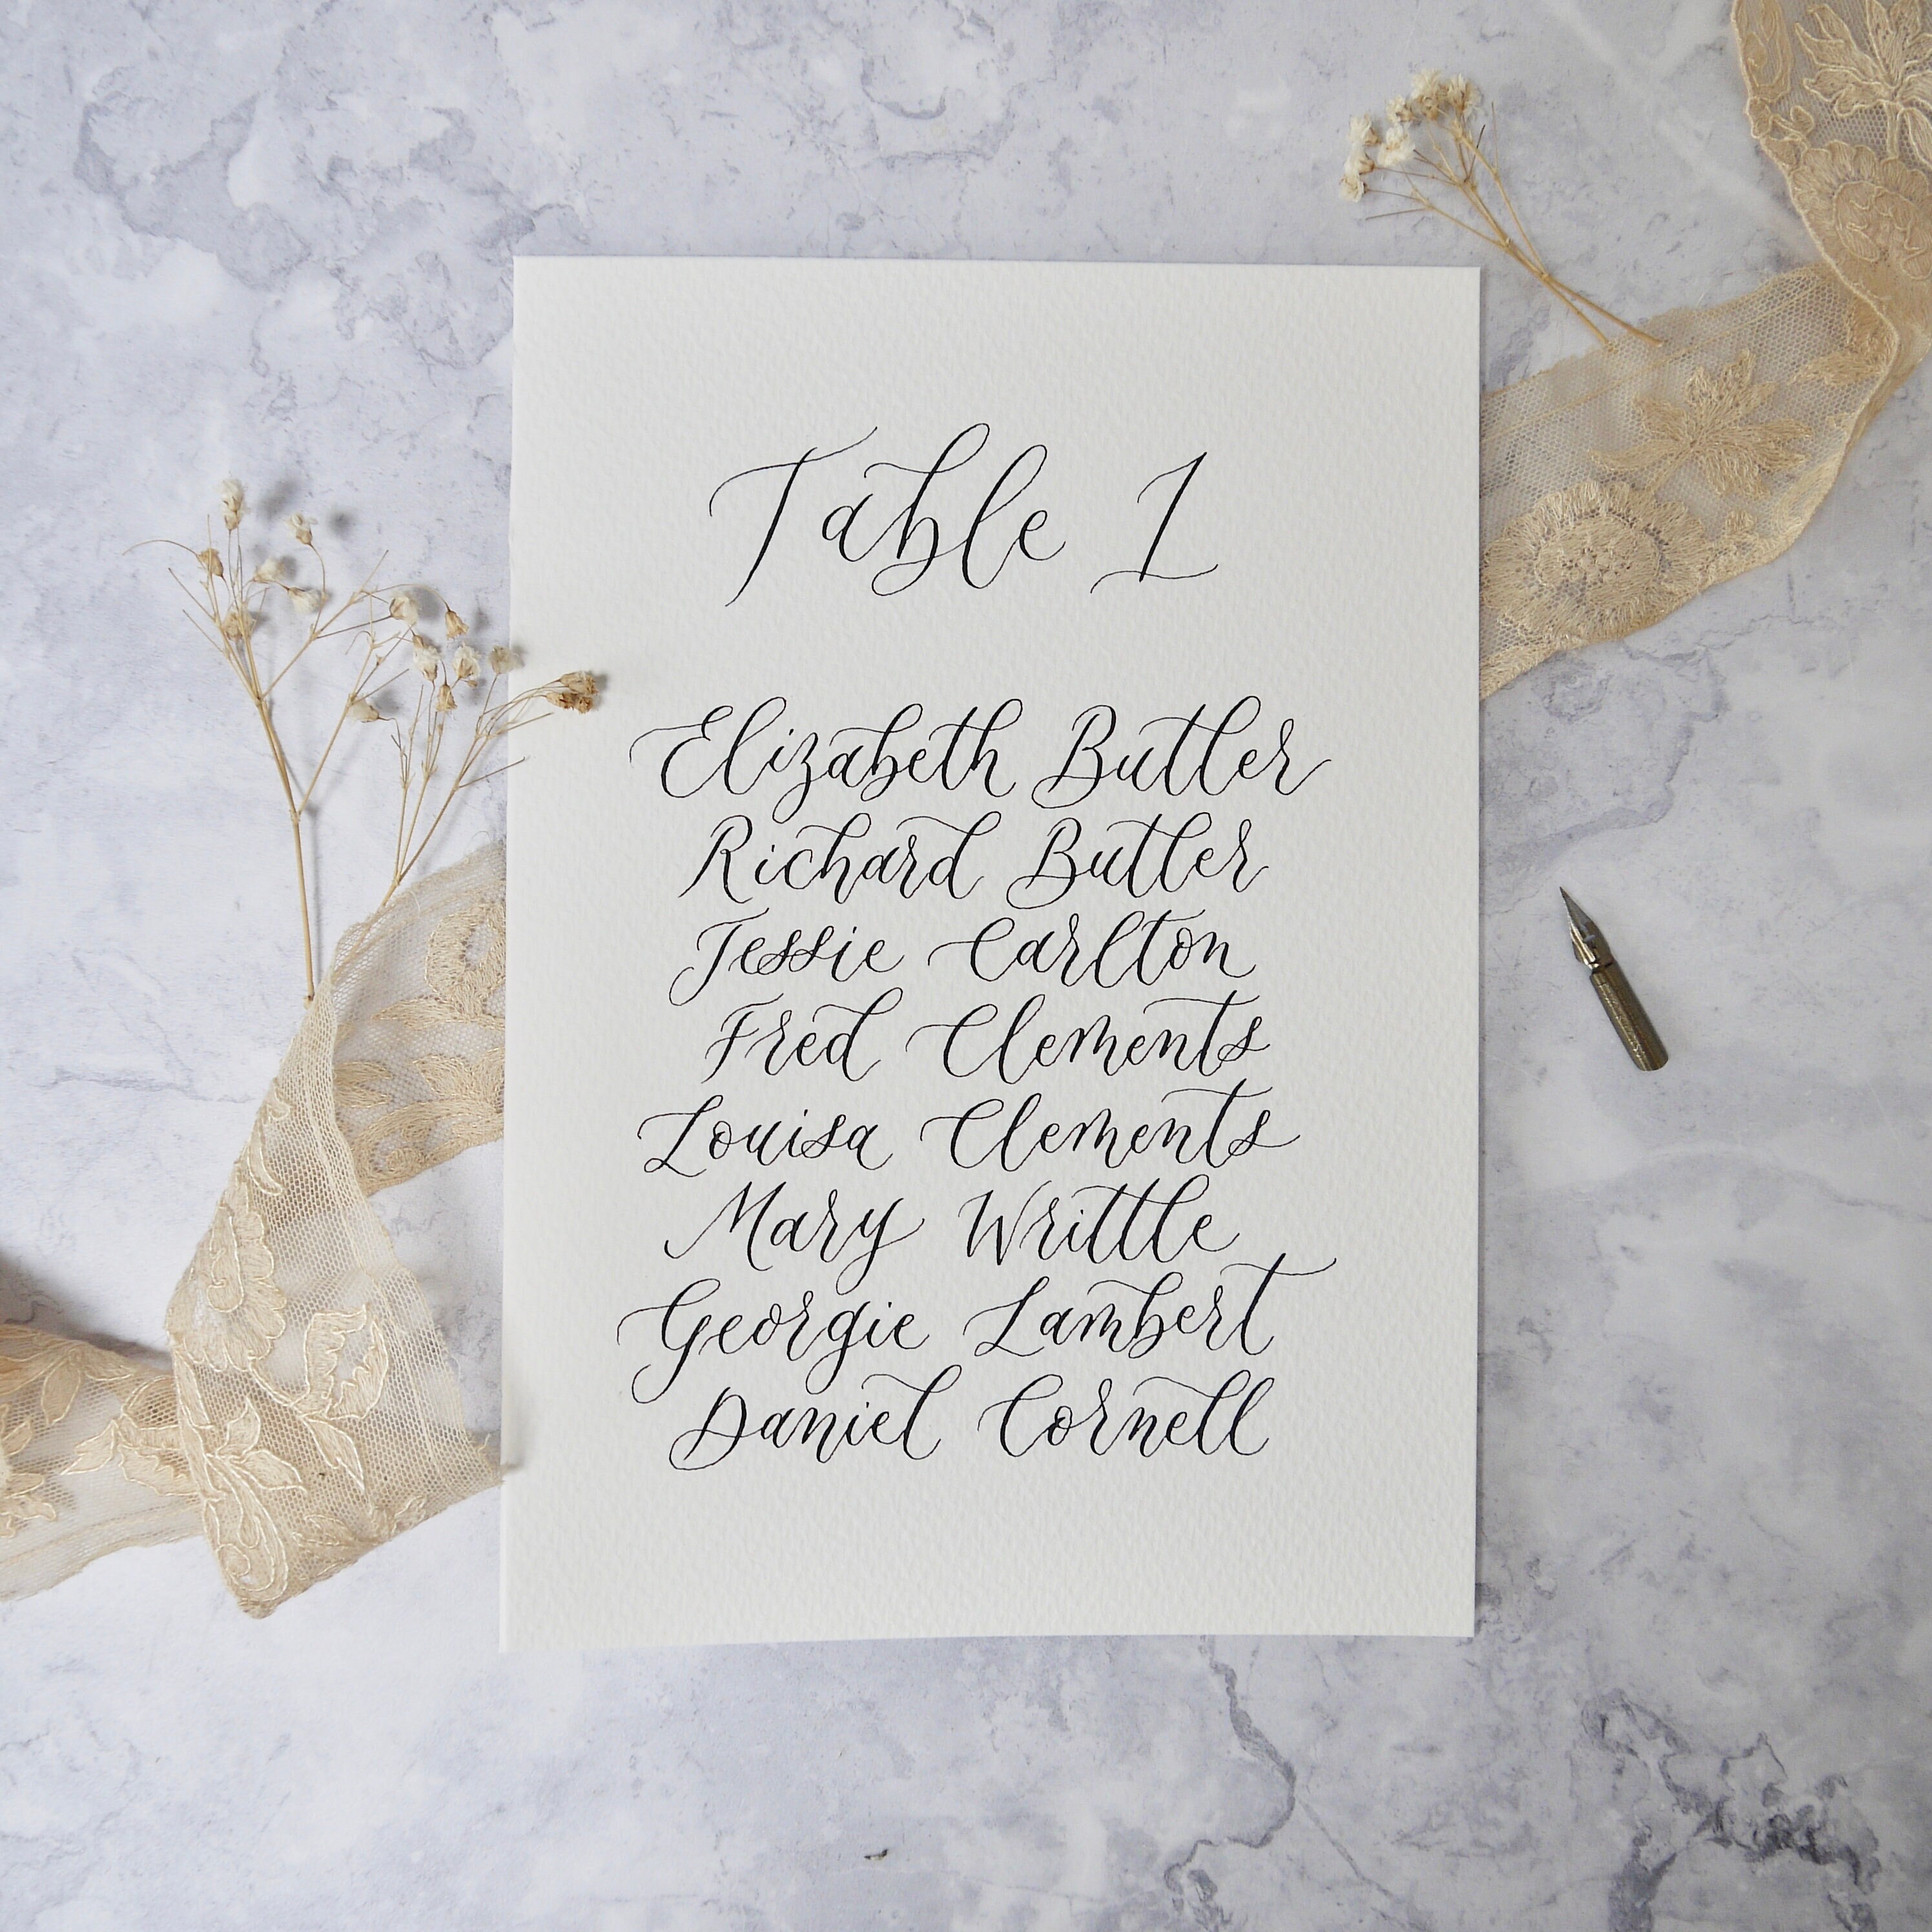 Table 1
Elizabeth Butler
Richard Butler
Jessie Carlton
Fred Clements
Louisa Clements
Mary Writtle
Georgie Lambert
Daniel Cornell